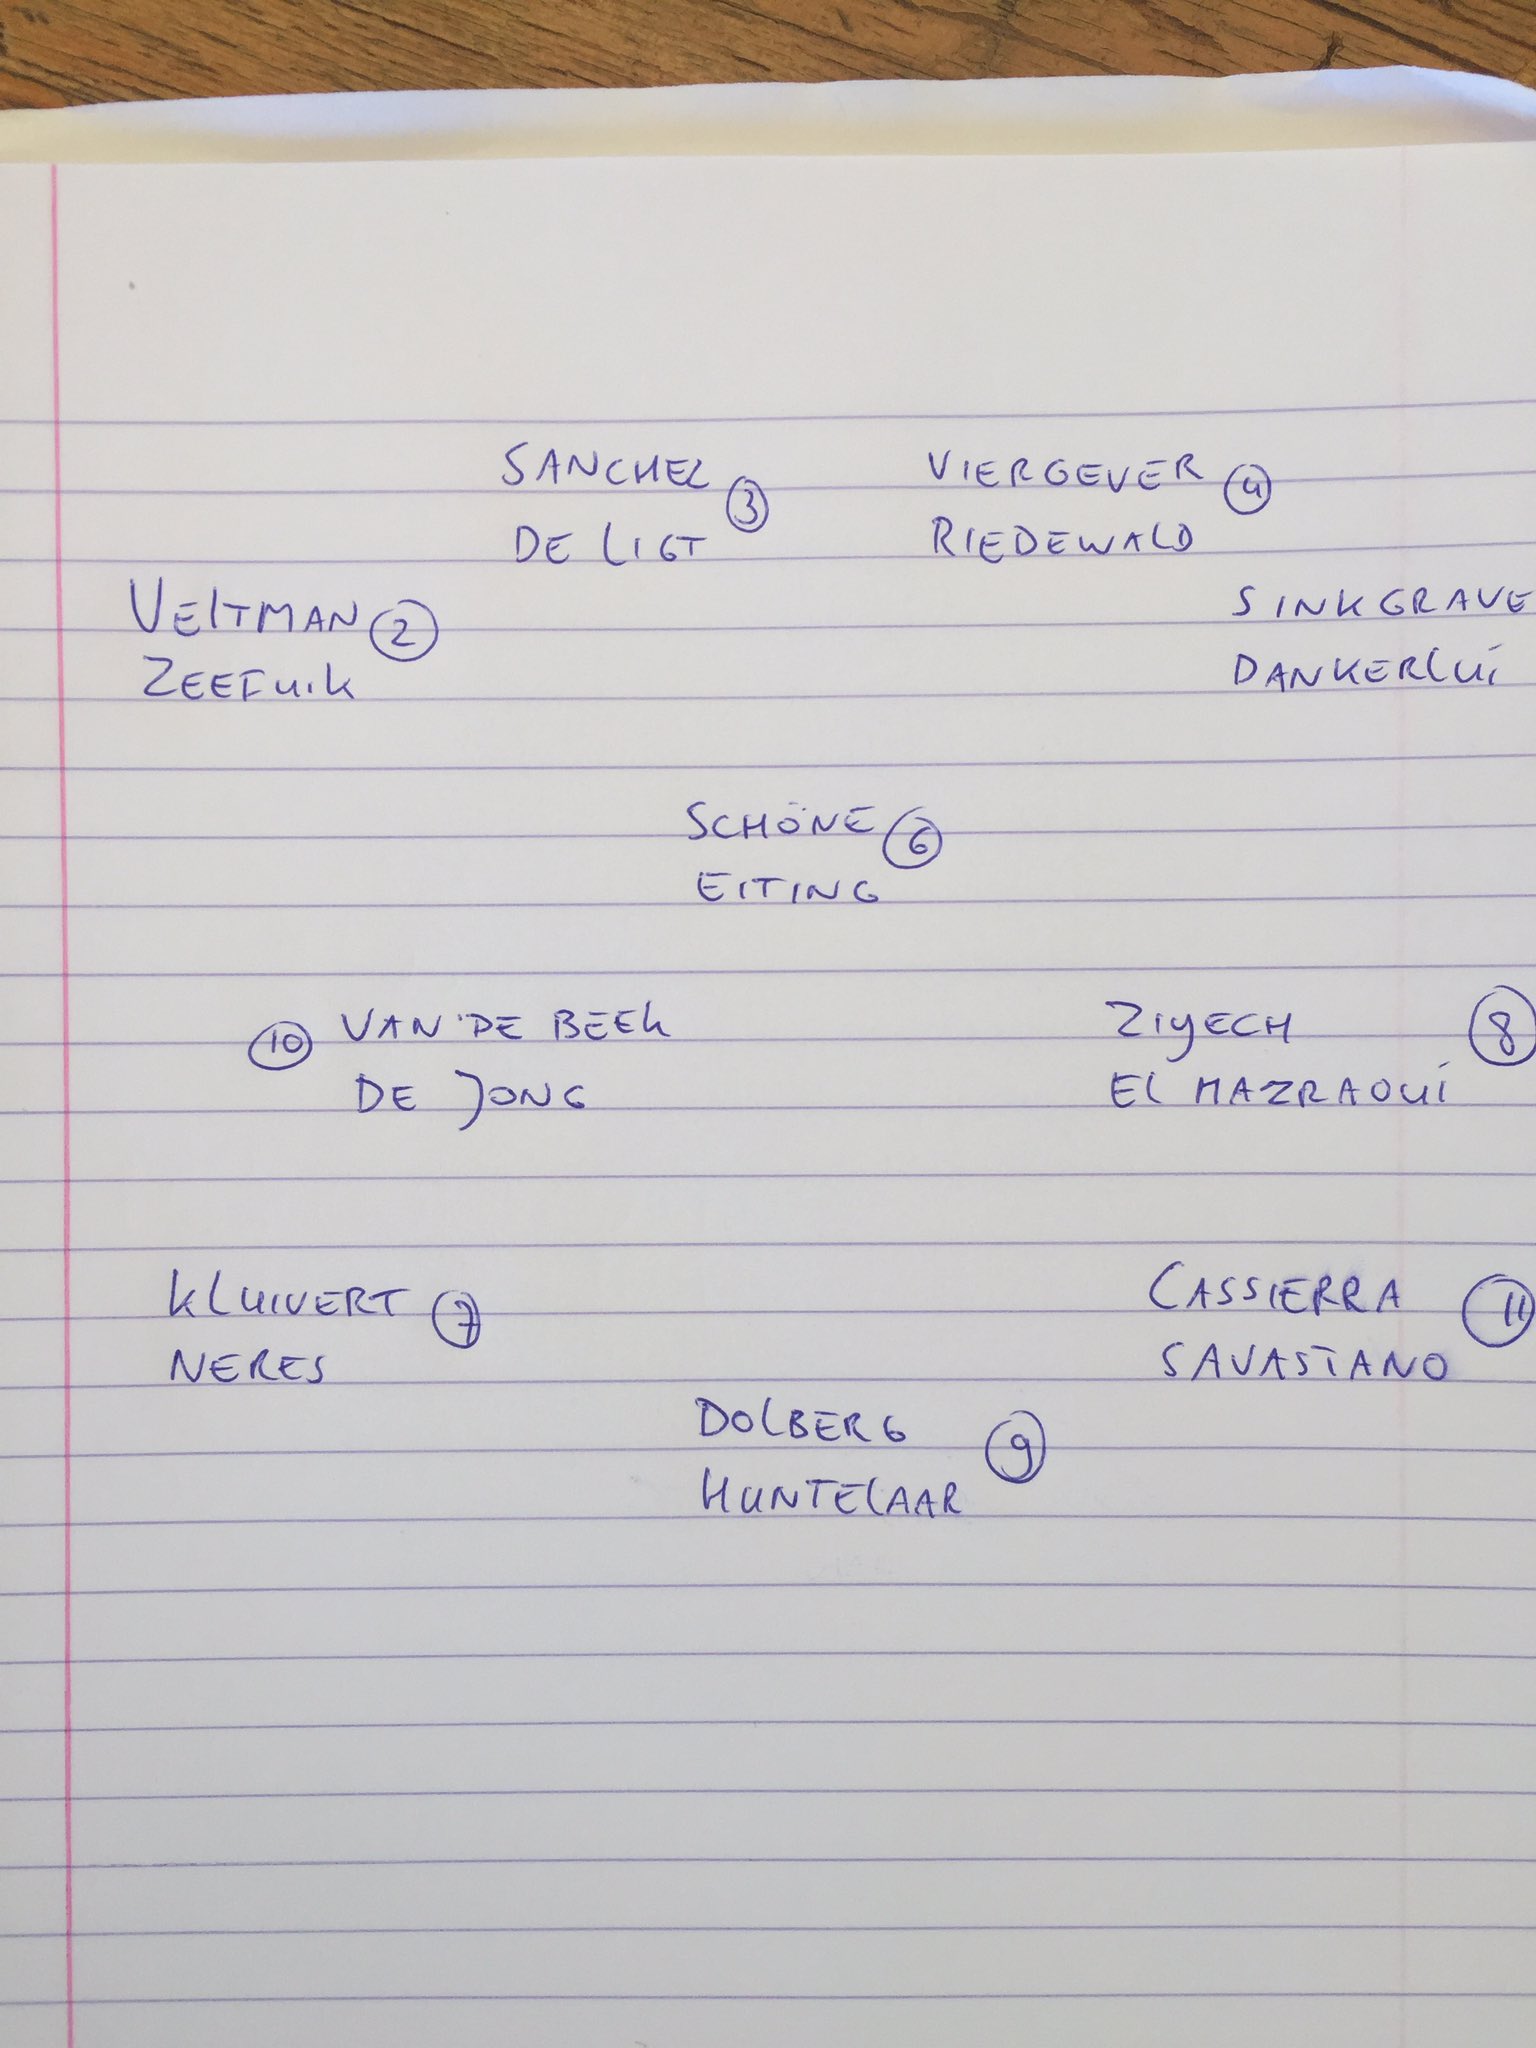 SANCHEZ ③
DE LIGT
VIERGEVER ④
RIEDEWALD
VELTMAN ②
ZEEFUIK
SINKGRAVE
DANKERLUI
SCHÖNE ⑥
EITING
⑩ VAN DE BEEK
DE JONG
ZIYECH ⑧
EL MAZRAOUI
KLUIVERT ⑦
NERES
CASSIERRA ⑪
SAVASTANO
DOLBERG ⑨
HUNTELAAR